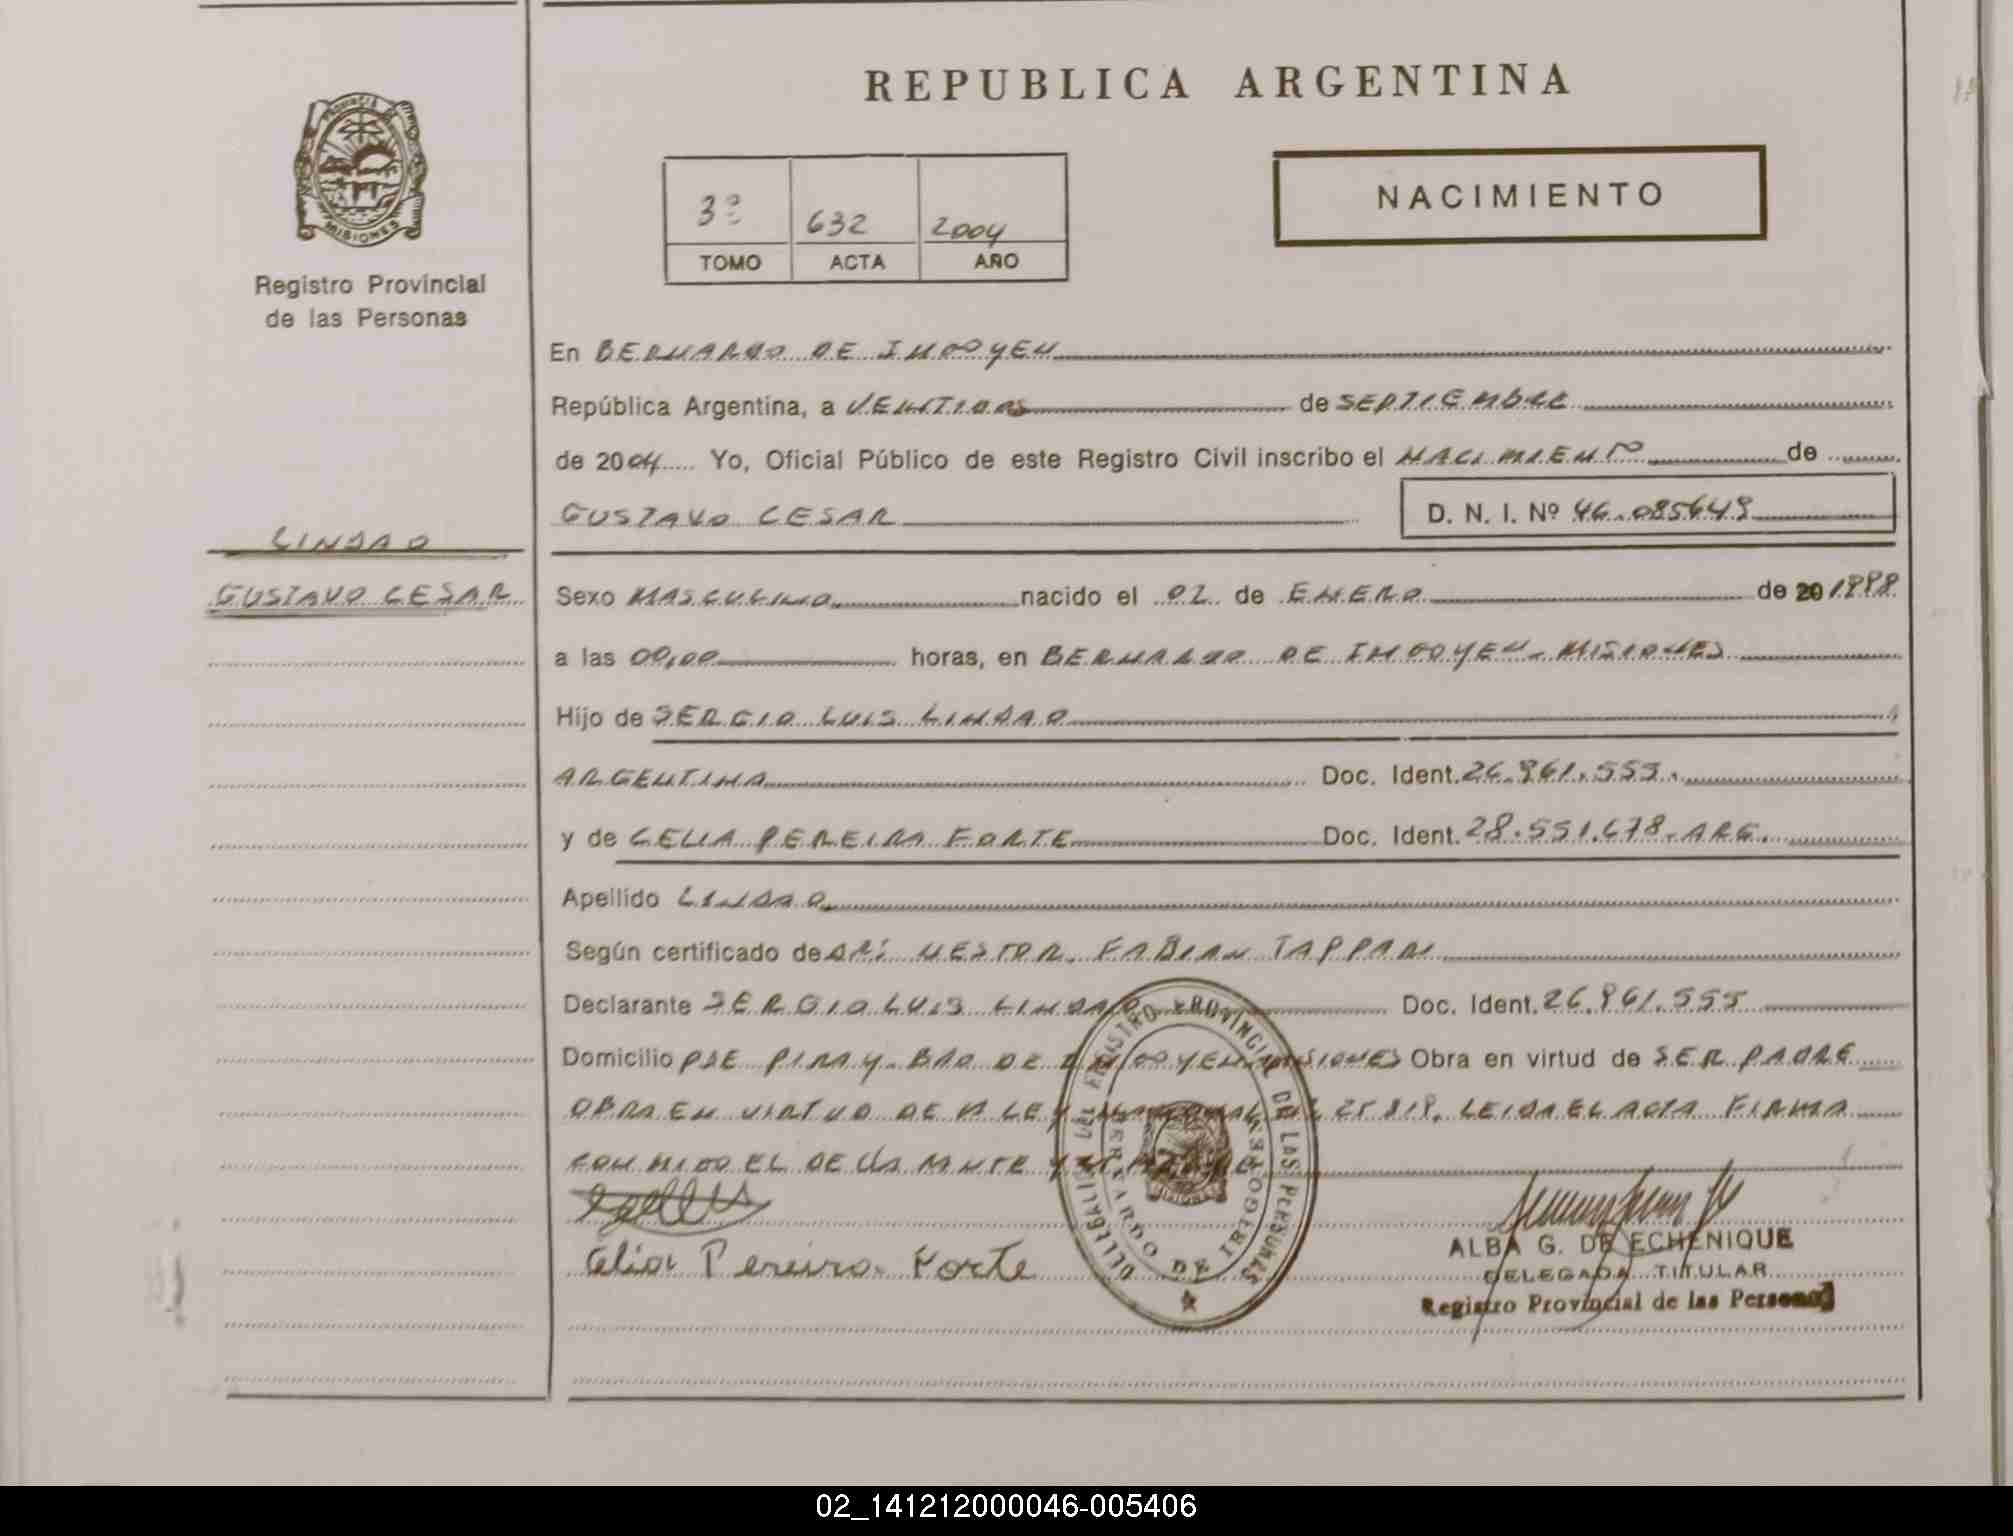 REPUBLICA ARGENTINA
PROVINCIA DE
MISIONES
Registro Provincial
de las Personas
3º 632 2004
TOMO ACTA AÑO
NACIMIENTO
En BERNARDO DE IRIGOYEN
República Argentina, a VEINTIDOS de SEPTIEMBRE
de 2004 Yo, Oficial Público de este Registro Civil inscribo el NACIMIENTO de
GUSTAVO CESAR D. N. I. Nº 46.085649
LINDAO
GUSTAVO CESAR
Sexo MASCULINO nacido el 02 de ENERO de 20 1998
a las 00,00 horas, en BERNARDO DE IRIGOYEN - MISIONES
Hijo de SERGIO LUIS LINDAO
ARGENTINA Doc. Ident. 26.961.555.
y de CELIA PEREIRA FORTE Doc. Ident. 28.551.678. ARG.
Apellido LINDAO
Según certificado de NESTOR FABIAN TAPPARI
Declarante SERGIO LUIS LINDAO Doc. Ident. 26.961.555
Domicilio PJE PIRAY - BDO DE IRIGOYEN MISIONES Obra en virtud de SER PADRE
OBRA EN VIRTUD DE LA LEY NACIONAL 25.819. LEIDA EL ACTA FIRMA
CONMIGO EL DECLARANTE Y
Celia Pereira Forte
DELEGACION REGISTRO PROVINCIAL DE LAS PERSONAS
BERNARDO DE IRIGOYEN
MISIONES
ALBA G. DE ECHENIQUE
DELEGADA TITULAR
Registro Provincial de las Personas
02_141212000046-005406